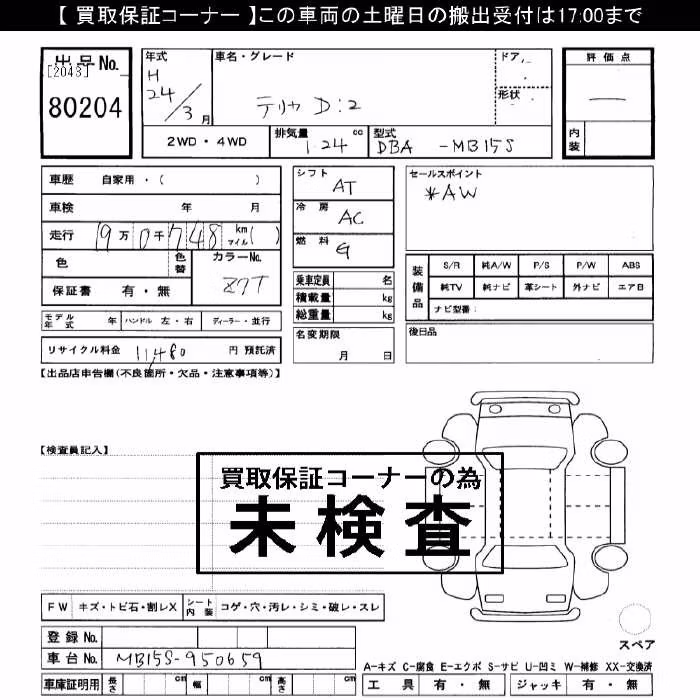 【 買取保証コーナー 】この車両の土曜日の搬出受付は17:00まで
出品No.
[2043]
80204
年式
H
24/3月
車名・グレード
デリカ D:2
ドア
形状
評価点
—
内装
2WD・4WD
排気量
1.24 cc
型式
DBA -MB15S
車歴 自家用・( )
車検 年 月
走行 19万0千748 km マイル( )
色
色替
カラーNo.
Z7T
保証書 有・無
モデル年式 年 ハンドル 左・右 ディーラー・並行
リサイクル料金 11,480 円 預託済
シフト
AT
冷房
AC
燃料
G
乗車定員 名
積載量 kg
総重量 kg
名変期限
月 日
セールスポイント
*AW
装備品
S/R 純A/W P/S P/W ABS
純TV 純ナビ 革シート 外ナビ エアB
ナビ型番:
後日品
【出品店申告欄(不良箇所・欠品・注意事項等)】
【検査員記入】
買取保証コーナーの為
未検査
FW キズ・トビ石・割レX シート内装 コゲ・穴・汚レ・シミ・破レ・スレ
登録 No.
車台 No. MB15S-950659
車庫証明用 長さ cm 幅 cm 高さ cm
スペア
A-キズ C-腐食 E-エクボ S-サビ U-凹ミ W-補修 XX-交換済
工具 有・無 ジャッキ 有・無